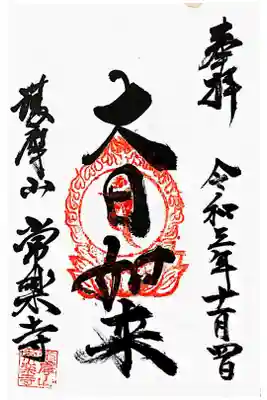 奉拝
令和三年十一月四日
大日如来
護摩山
常楽寺